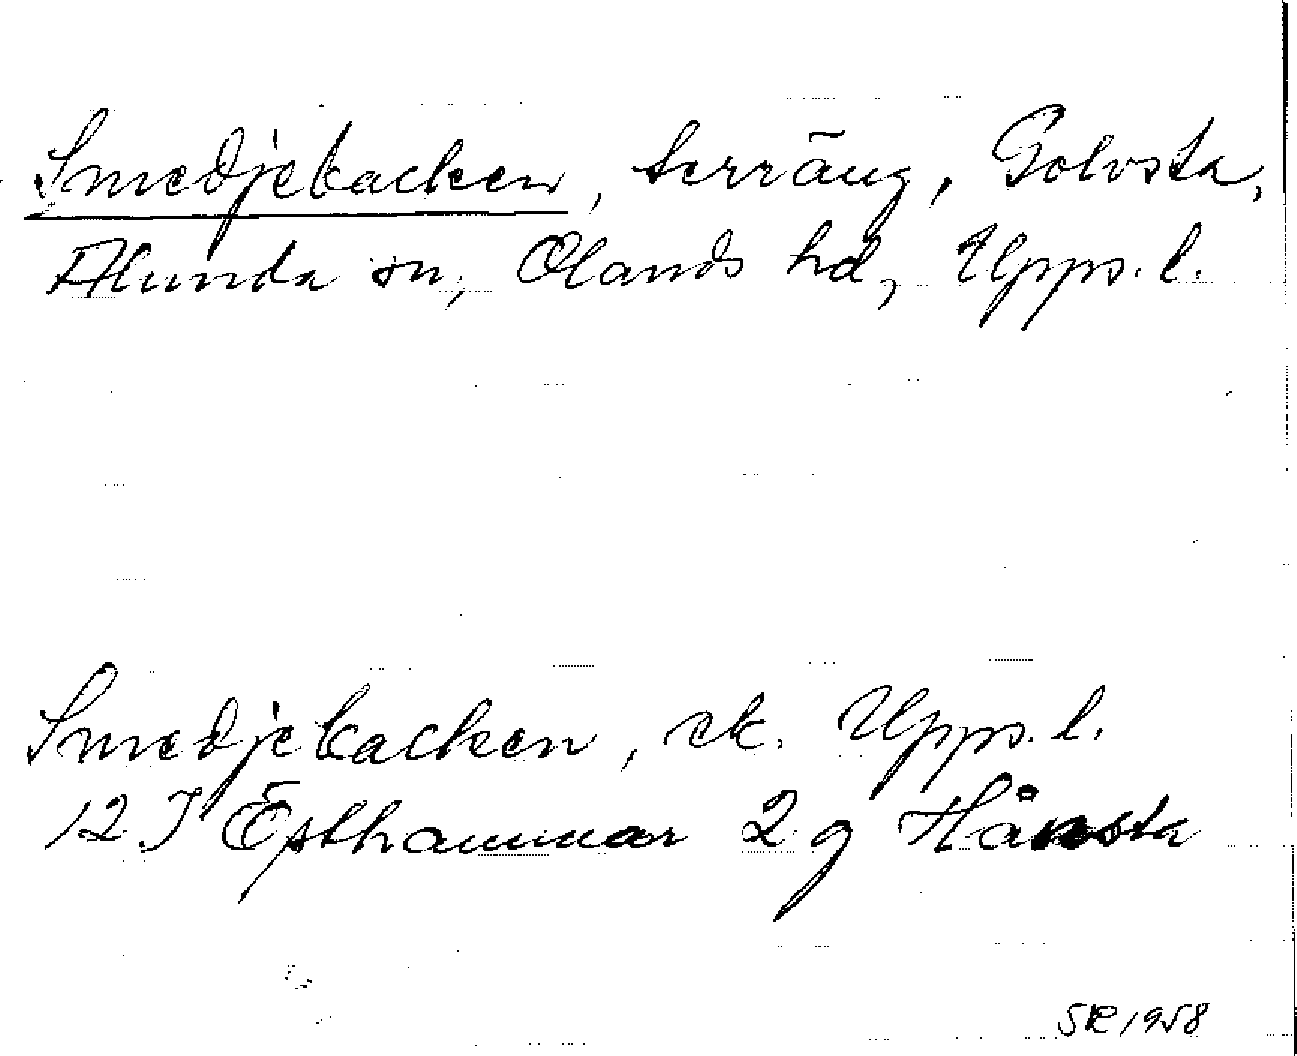 Smedjebacken, terräng, Golvsta,
Alunda sn, Olands hd, Upps. l.
Smedjebacken, ek. Upps. l.
12 I Östhammar 2 g Hånsta
SR 1958